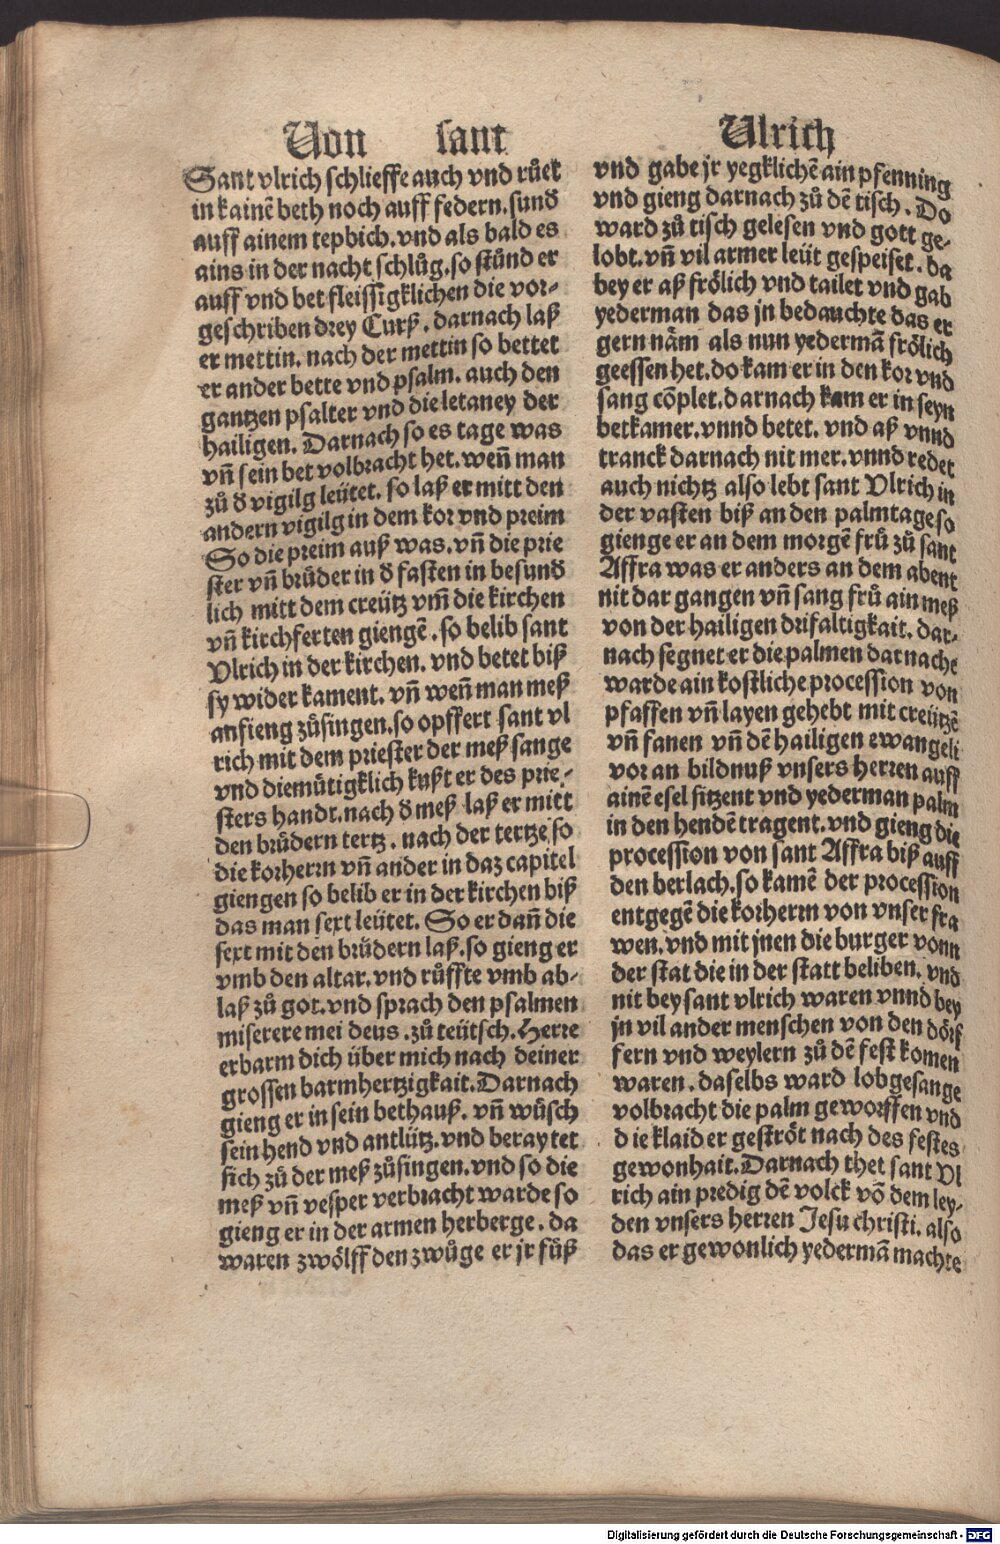 Von sant Ulrich
Sant vlrich schlieffe auch vnd růet
in kainē beth noch auff federn. sund̄
auff ainem tepbich. vnd als bald es
ains in der nacht schlůg. so stůnd er
auff vnd bet fleissigklichen die vor-
geschriben drey Curß. darnach laß
er mettin. nach der mettin so bettet
er ander bette vnd psalm. auch den
gantzen psalter vnd die letaney der
hailigen. Darnach so es tage was
vn̄ sein bet volbracht het. wen̄ man
zů d̄ vigilg leütet. so laß er mitt den
andern vigilg in dem kor vnd preim
So die preim auß was. vn̄ die prie
ster vn̄ brůder in d̄ fasten in besund̄
lich mitt dem creütz vm̄ die kirchen
vn̄ kirchferten giengē. so belib sant
Vlrich in der kirchen. vnd betet biß
sy wider kament. vn̄ wen̄ man meß
anfieng zůsingen. so opffert sant vl
rich mit dem priester der meß sange
vnd diemütigklich kußt er des prie-
sters handt. nach d̄ meß laß er mitt
den brůdern tertz. nach der tertze so
die korherrn vn̄ ander in daz capitel
giengen so belib er in der kirchen biß
das man sext leütet. So er dan̄ die
sext mit den brüdern laß. so gieng er
vmb den altar. vnd růffte vmb ab-
laß zů got. vnd sprach den psalmen
miserere mei deus. zů teütsch. Herre
erbarm dich über mich nach deiner
grossen barmhertzigkait. Darnach
gieng er in sein bethauß. vn̄ wůsch
sein hend vnd antlütz. vnd beraytet
sich zů der meß zůsingen. vnd so die
meß vn̄ vesper verbracht warde so
gieng er in der armen herberge. da
waren zwölff den zwůge er jr füß
vnd gabe jr yegklichē ain pfenning
vnd gieng darnach zů dē tisch. Do
ward zů tisch gelesen vnd gott ge-
lobt. vn̄ vil armer leüt gespeiset. da
bey er aß frölich vnd tailet vnd gab
yederman das jn bedauchte das er
gern näm als nun yedermā frölich
geessen het. do kam er in den kor vnd
sang cōplet. darnach kam er in seyn
betkamer. vnnd betet. vnd aß vnnd
tranck darnach nit mer. vnnd redet
auch nichtz also lebt sant Vlrich in
der vasten biß an den palmtage so
gienge er an dem morgē frů zů sant
Affra was er anders an dem abent
nit dar gangen vn̄ sang frů ain meß
von der hailigen drifaltigkait. dar-
nach segnet er die palmen darnache
warde ain kostliche procession von
pfaffen vn̄ layen gehebt mit creützē
vn̄ fanen vn̄ dē hailigen ewangeli
vor an bildnuß vnsers herren auff
ainē esel sitzent vnd yederman palm
in den hendē tragent. vnd gieng die
procession von sant Affra biß auff
den berlach. so kamē der procession
entgegē die korherrn von vnser fra
wen. vnd mit jnen die burger vonn
der stat die in der statt beliben. vnd
nit bey sant vlrich waren vnnd bey
jn vil ander menschen von den dörf
fern vnd weylern zů dē fest komen
waren. daselbs ward lobgesange
volbracht die palm geworffen vnd
die klaider geströt nach des festes
gewonhait. Darnach thet sant Vl
rich ain predig dē volck vō dem ley-
den vnsers herren Jesu christi. also
das er gewonlich yedermā machte
Digitalisierung gefördert durch die Deutsche Forschungsgemeinschaft - DFG